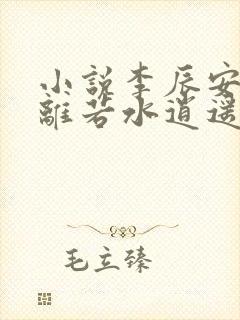 小説李辰安
離若水逍遥
毛立臻